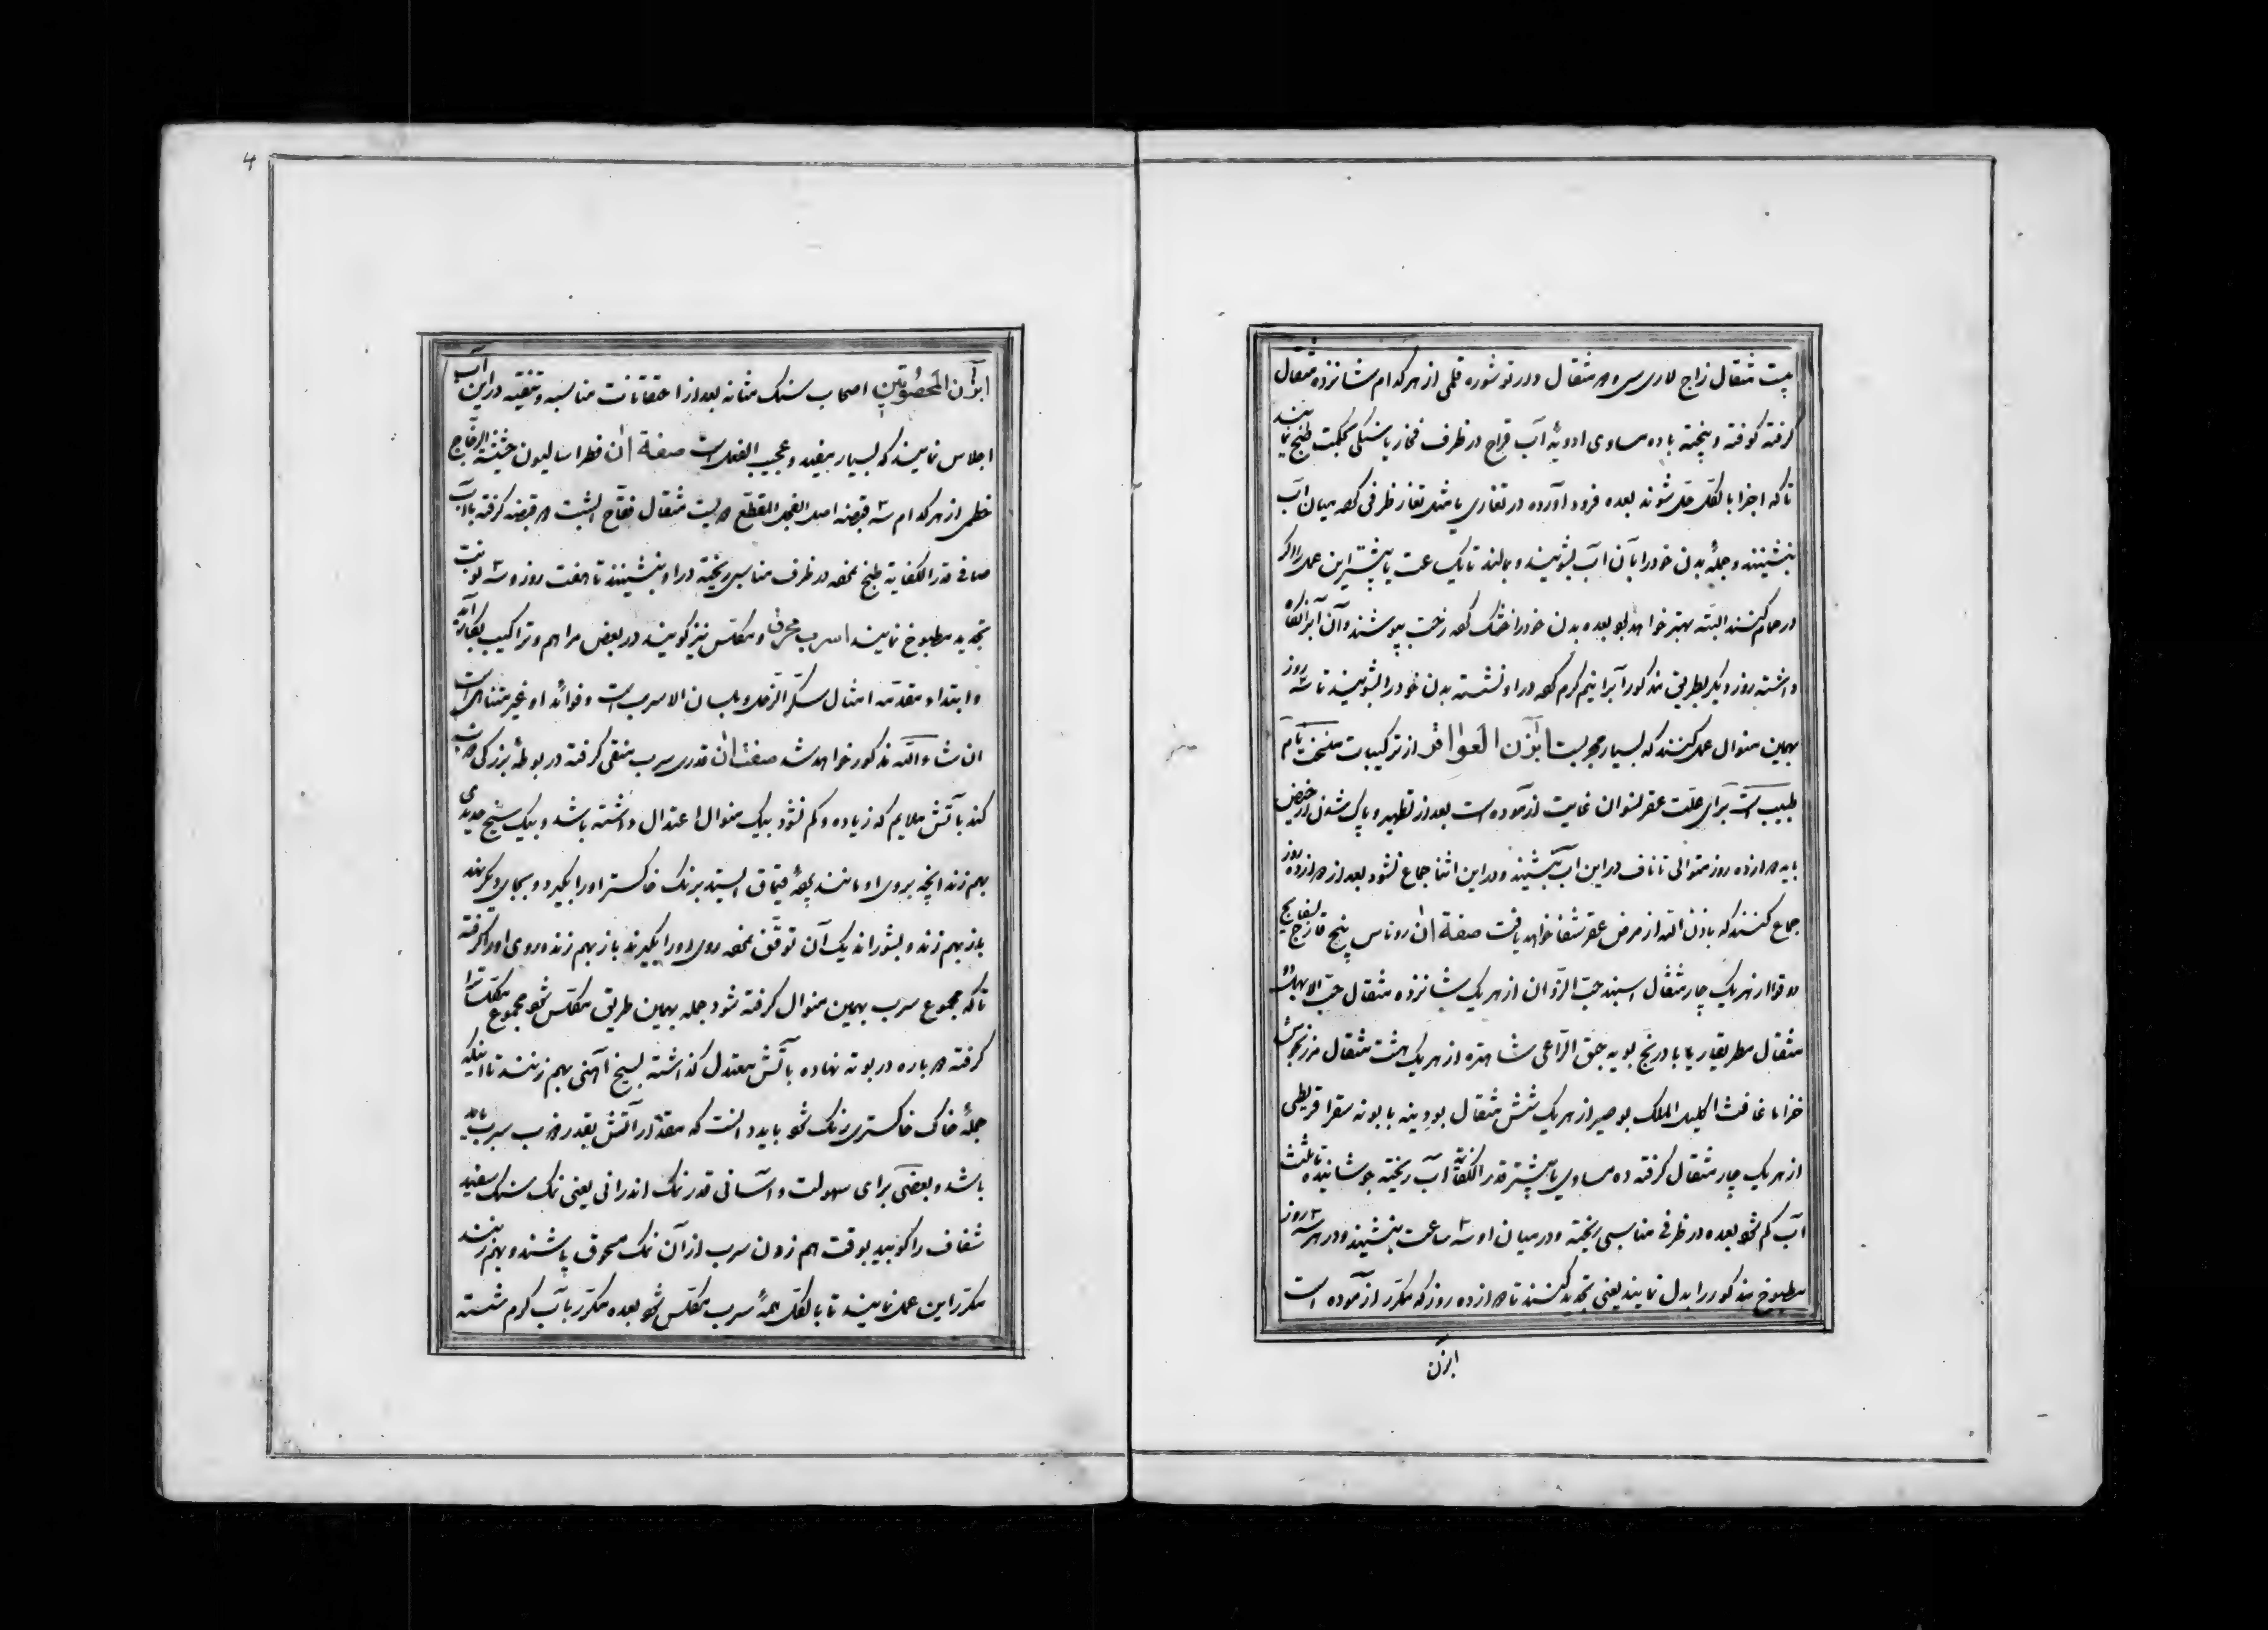 بیست مثقال زاج لاری سی و دو مثقال دردتو شوره قلمی از هر کدام شانزده مثقال
گرفته کوفته و پخته با ده مساوی ادویهٔ آب قراح در ظرف فخار یا سنگی بحکمت طبخ نمایند
تا که اجزا بالکل حل شوند بعده فرود آورده در تغاری یا مثل تغار ظرفی که میان آب
بنشینند و جملهٔ بدن خود را بآن آب بشویند و بمالند تا یک ساعت یا بیشتر این عمل را اگر
در حمام کنند البته بهتر خواهد بود بعده بدن خود را خشک کرده رخت بپوشند و آن آبرا نگاه
داشته روز دیگر بطریق مذکور آبرا نیم گرم کرده در او نشسته بدن خود را بشویند تا سه روز
بهمین منوال عمل کنند که بسیار مجربست ابزن العواقر از ترکیبات
طبیب است برای علت عقر نسوان غایت ازموده است بعد از تطهیر و پاک شدن از حیض
باید دوازده روز متوالی تا ناف در این اب بنشیند و در این اثنا جماع نشود بعد از دوازده روز
جماع کنند که باذن الله از مرض عقر شفا خواهد یافت صفة ان روناس پنج
دوقو از هر یک چار مثقال اسپند حب الزوان از هر یک شانزده مثقال حب
مثقال بادرنج بویه حبق الراعی شاهتره از هر یک هشت مثقال مرزنجوش
خزاما غافث اکلیل الملک بوصیر از هر یک شش مثقال بودینه بابونه سقرا قریطی
از هر یک چار مثقال گرفته ده مساوی یا بیشتر قدر الکفایة آب ریخته جوشانیده تا ثلث
آب کم شود بعده در ظرف مناسبی ریخته و در میان او سه ساعت بنشیند و در هر سه روز
مطبوخ مذکور را بدل نمایند یعنی تجدید کنند تا دوازده روز که مکرر ازموده است
ابزن
4
ابزن المحصوتین اصحاب سنگ مثانه بعد از احتقانات مناسبه و تنقیه در این آب
اجلاس نمایند که بسیار مفید و عجیب الفعل است صفة ان فطراسالیون حشیشة الزجاج
خطمی از هر کدام سه قبضه اصل الفجل المقطع دو بیست مثقال فقاح الشبت دو قبضه گرفته با آب
صافی قدر الکفایة طبخ نموده در ظرف مناسبی ریخته در او بنشینند تا هفت روز و سه نوبت
تجدید مطبوخ نمایند اسرب محرق و مکلس نیز گویند در بعض مراهم و تراکیب بکار آید
و ابتداء مقدمه امثال سکر الزحل و بلسان الاسرب است و فوائد او غیر متناهی است
ان شاء الله مذکور خواهد شد صفت ان قدری سرب منقی گرفته در بوطهٔ بزرگی ذوب
کند بآتش ملایم که زیاده و کم نشود بیک منوال اعتدال داشته باشد و بیک سیخ حدیدی
بهم زند انچه بروی او مانند پردهٔ قیماق ایستد برنک خاکستر او را بگیرد و بجای دیگر نهد
باز بهم زند و بشوراند یک آن توقف نموده روی او را بگیرند باز بهم زند و روی او را گرفته
تا که مجموع سرب بهمین منوال گرفته شود جمله بهمین طریق مکلس شود مجموع مکلسات را
گرفته دوباره در بوته نهاده بآتش معتدل گذاشته بسیخ آهنی بهم زنند تا اینکه
جملهٔ خاک خاکستری رنک شود باید دانست که مقدار آتش بقدر ذوب سرب باید
باشد و بعضی برای سهولت و آسانی قدر نمک اندرانی یعنی نمک سنک سفید
شفاف را کوبیده بوقت بهم زدن سرب از آن نمک مسحوق پاشند و بهم زنند
مکرر این عمل نمایند تا بالکل همهٔ سرب مکلس شود بعده مکرر با آب گرم شسته